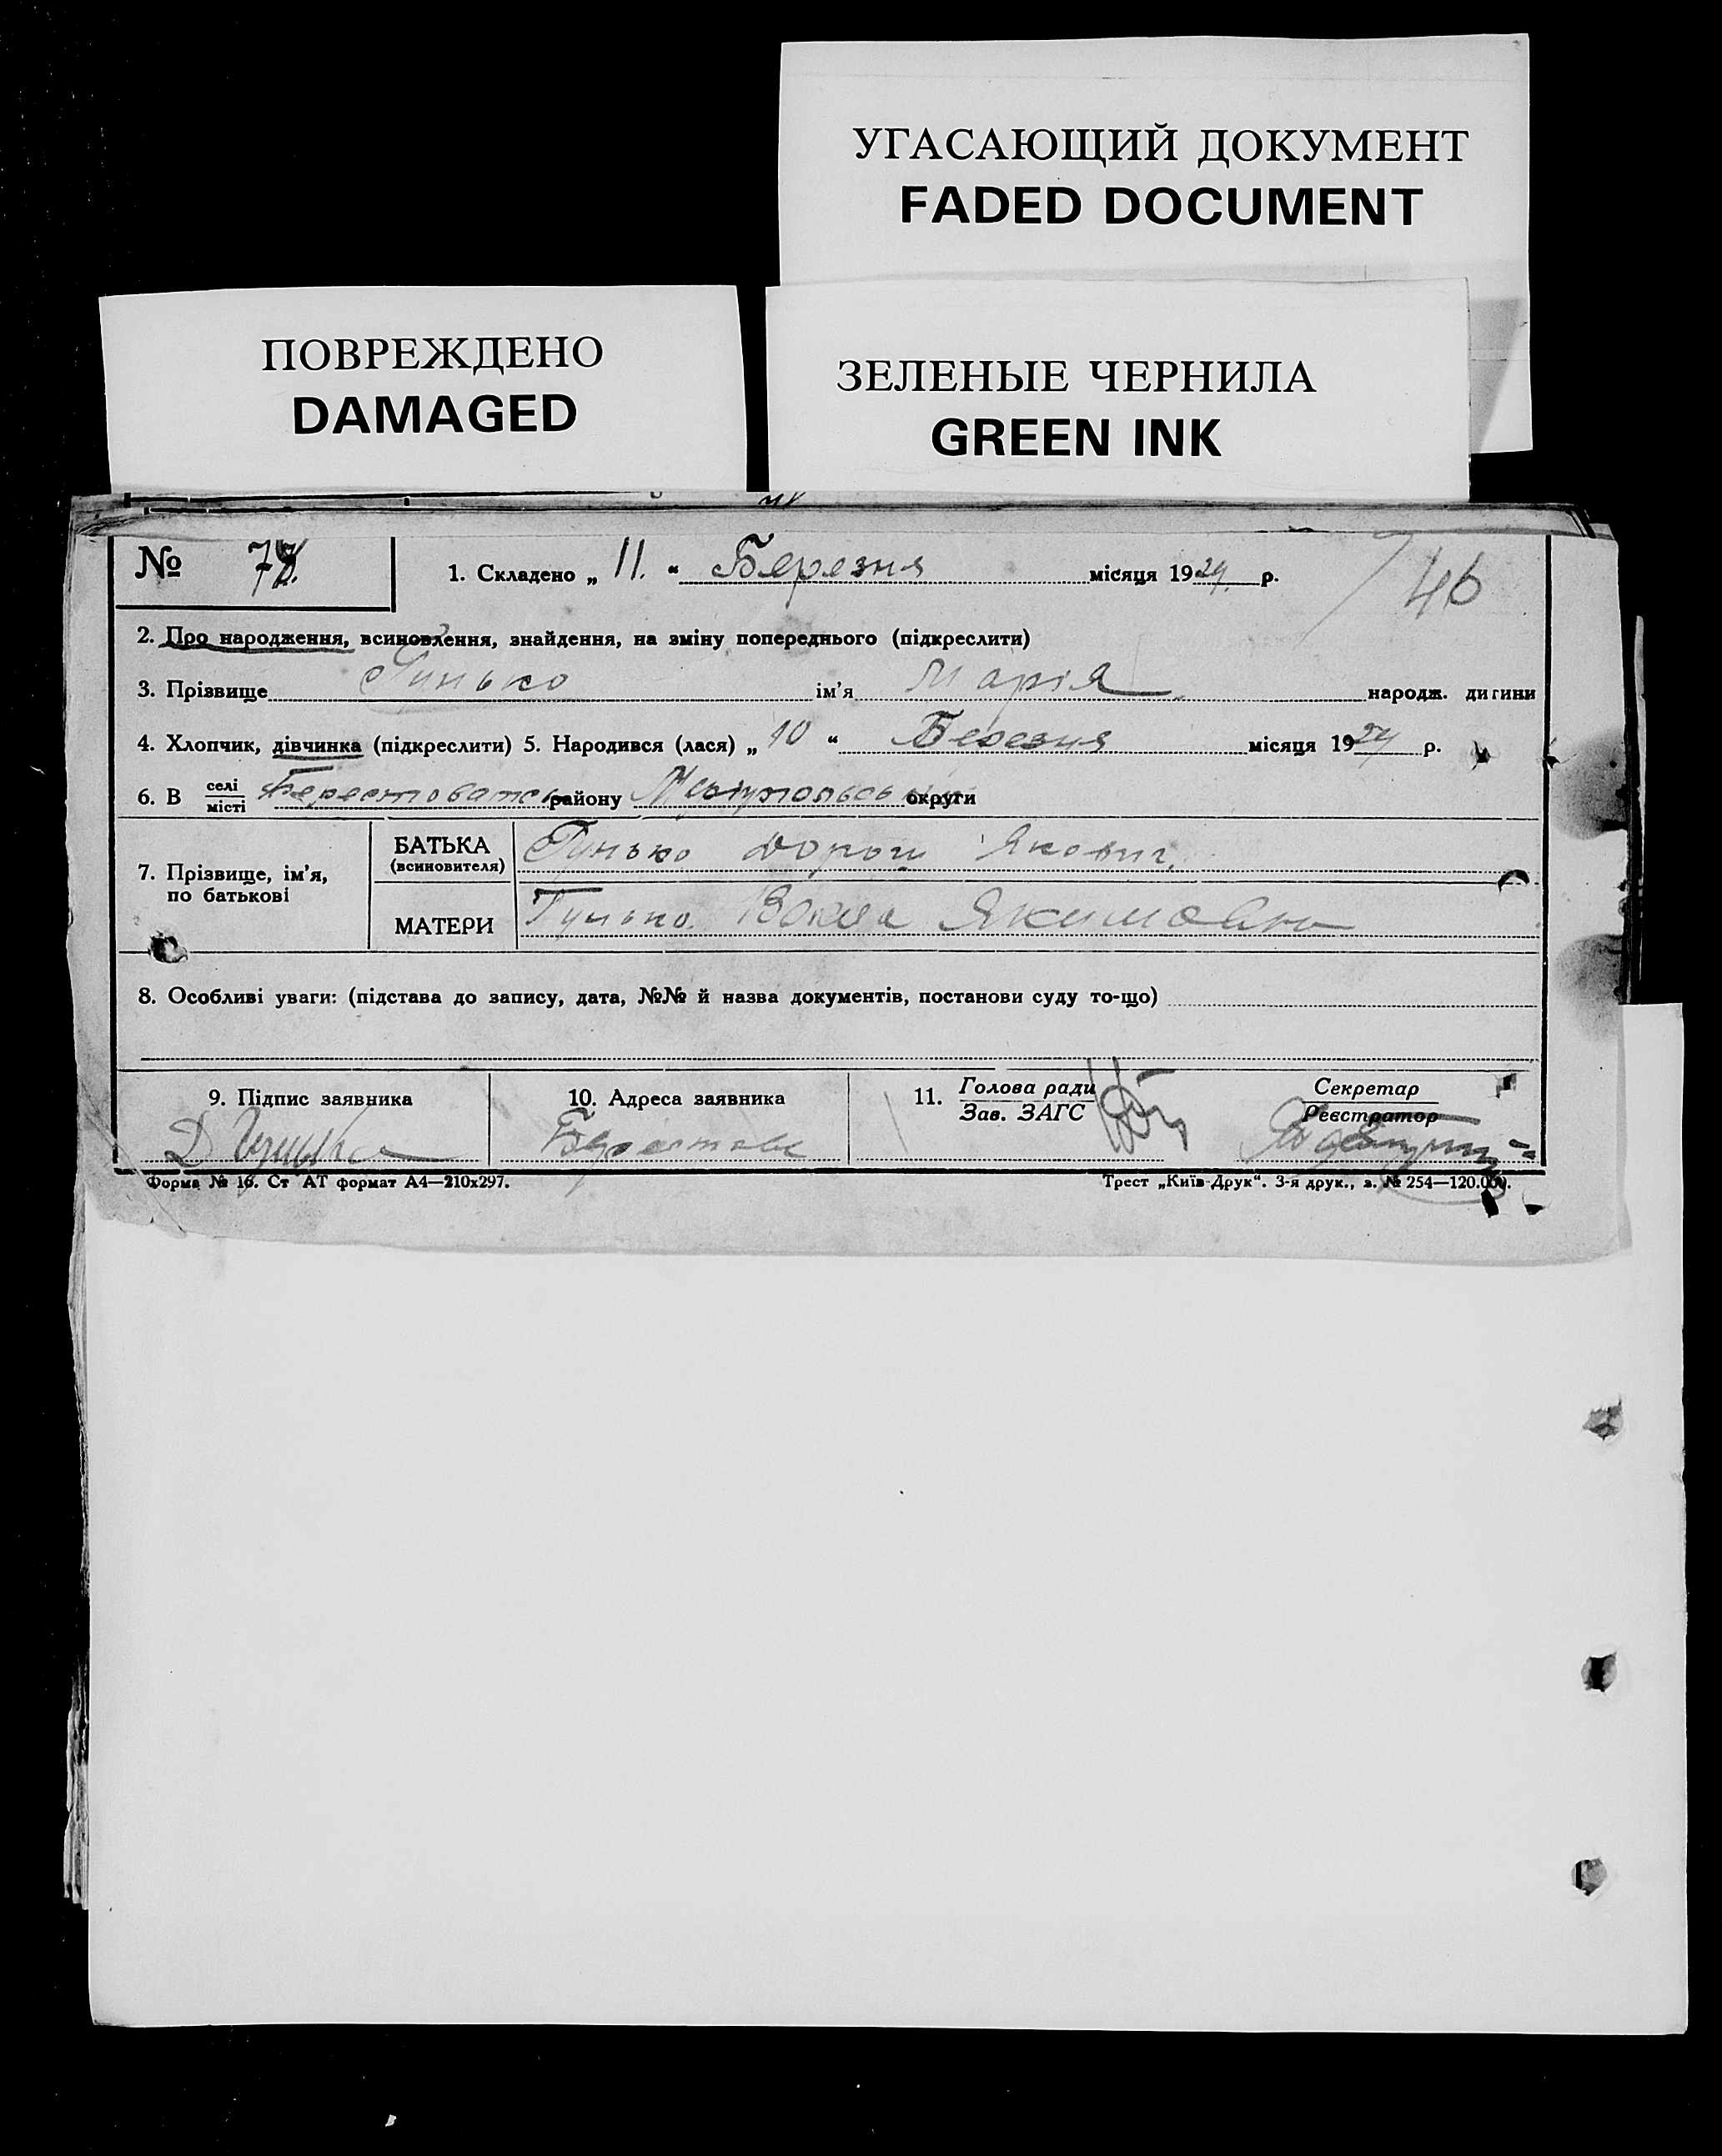 УГАСАЮЩИЙ ДОКУМЕНТ
FADED DOCUMENT
ПОВРЕЖДЕНО
DAMAGED
ЗЕЛЕНЫЕ ЧЕРНИЛА
GREEN INK
№ 78. 1. Складено „ 11. “ Березня місяця 1924. р. 46
2. Про народження, всиновлення, знайдення, на зміну попереднього (підкреслити)
3. Прізвище Гунько ім'я Марія народж. дитини
4. Хлопчик, дівчинка (підкреслити) 5. Народився (лася) „ 10 “ Березня місяця 1924 р.
6. В селі/місті району округи
7. Прізвище, ім'я, по батькові
БАТЬКА (всиновителя) Гунько Якович.
МАТЕРИ Гунько
8. Особливі уваги: (підстава до запису, дата, №№ й назва документів, постанови суду то-що)
9. Підпис заявника 10. Адреса заявника 11. Голова ради/Зав. ЗАГС Секретар/Реєстратор
Д Гунько
Форма № 16. Ст АТ формат А4—210х297. Трест „Київ-Друк“. 3-я друк., з. № 254—120.000.